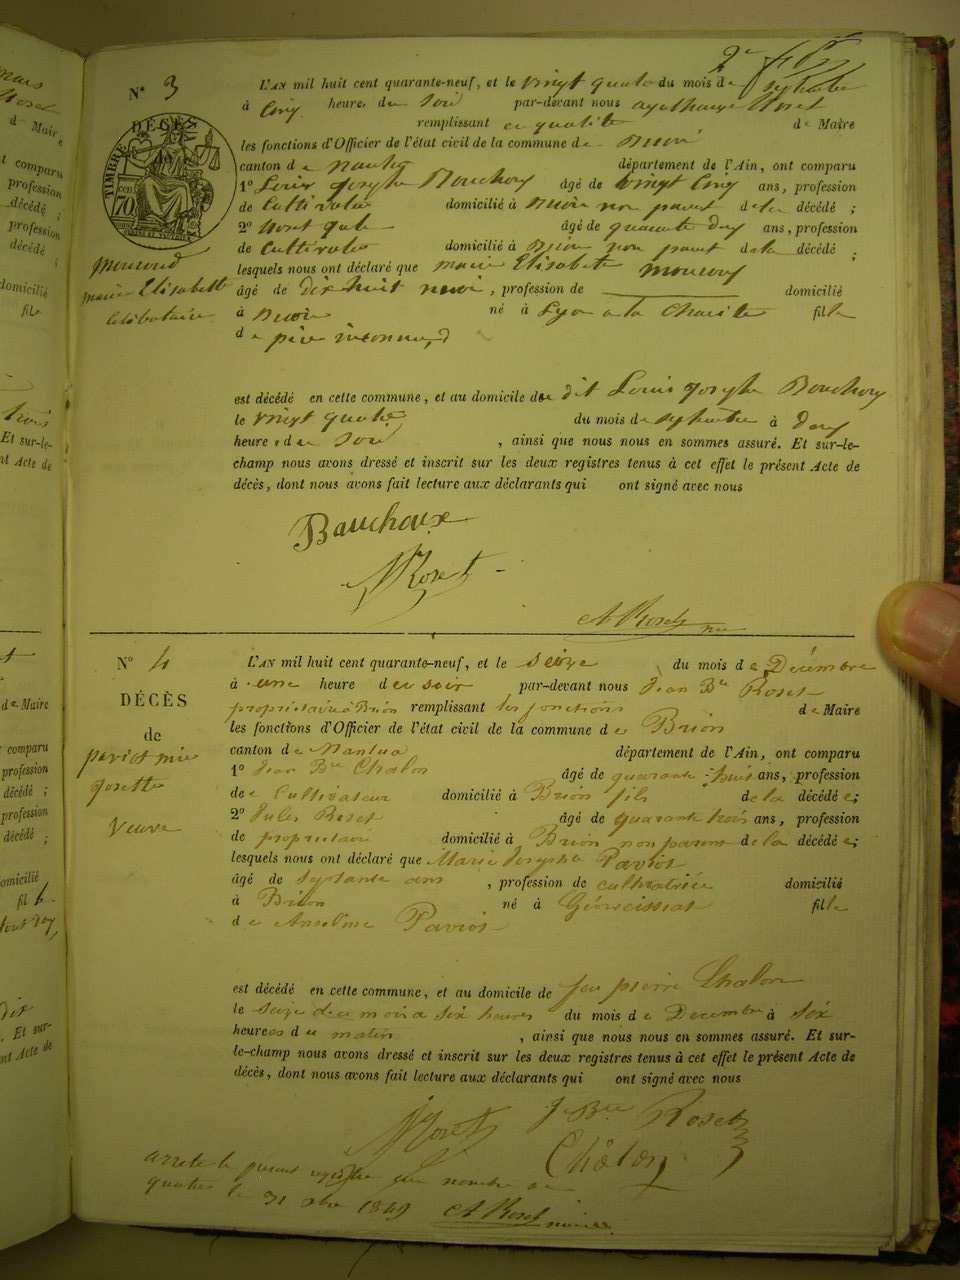 N° 3
DÉCÈS
TIMBRE
70
L'AN mil huit cent quarante-neuf, et le vingt quatre du mois de septembre
à cinq heures du soir par-devant nous Roset
remplissant en qualité de Maire
les fonctions d'Officier de l'état civil de la commune de Brion
canton de Nantua département de l'Ain, ont comparu
1° Louis Joseph Bouchoux âgé de vingt cinq ans, profession
de Cultivateur domicilié à Brion non parent de la décédé ;
2° Roset âgé de quarante deux ans, profession
de Cultivateur domicilié à Brion non parent de la décédé ;
lesquels nous ont déclaré que marie Elisabete
marie Elisabette
celibataire
âgé de dix huit mois, profession de domicilié
à Brion né à Lyon a la Charité fille
de père inconnu
est décédé en cette commune, et au domicile du dit Louis Joseph Bouchoux
le vingt quatre du mois de septembre à deux
heures du soir, ainsi que nous nous en sommes assuré. Et sur-le-
champ nous avons dressé et inscrit sur les deux registres tenus à cet effet le présent Acte de
décès, dont nous avons fait lecture aux déclarants qui ont signé avec nous
Bauchoux
Roset
A Roset
N° 4
DÉCÈS
de
paviot marie
josette
veuve
L'AN mil huit cent quarante-neuf, et le seize du mois de Décembre
à une heure du soir par-devant nous Jean Bte Roset
propriétaire à Brion remplissant les fonctions de Maire
les fonctions d'Officier de l'état civil de la commune de Brion
canton de Nantua département de l'Ain, ont comparu
1° Jean Bte Chalon âgé de quarante-huit ans, profession
de Cultivateur domicilié à Brion fils de la décédée;
2° Jules Roset âgé de quarante trois ans, profession
de propriétaire domicilié à Brion non parent de la décédée;
lesquels nous ont déclaré que Marie Josephte Paviot
âgé de septante ans, profession de cultivatrice domicilié
à Brion né à Géovreissiat fille
de Anselme Paviot
est décédé en cette commune, et au domicile de feu pierre Chalon
le seize du mois a six heures du mois de Decembre à six
heures du matin, ainsi que nous nous en sommes assuré. Et sur-
le-champ nous avons dressé et inscrit sur les deux registres tenus à cet effet le présent Acte de
décès, dont nous avons fait lecture aux déclarants qui ont signé avec nous
Roset J Bte Roset
Châlon
arrêté le présent registre au nombre de
quatre le 31 xbre 1849 A Roset maire